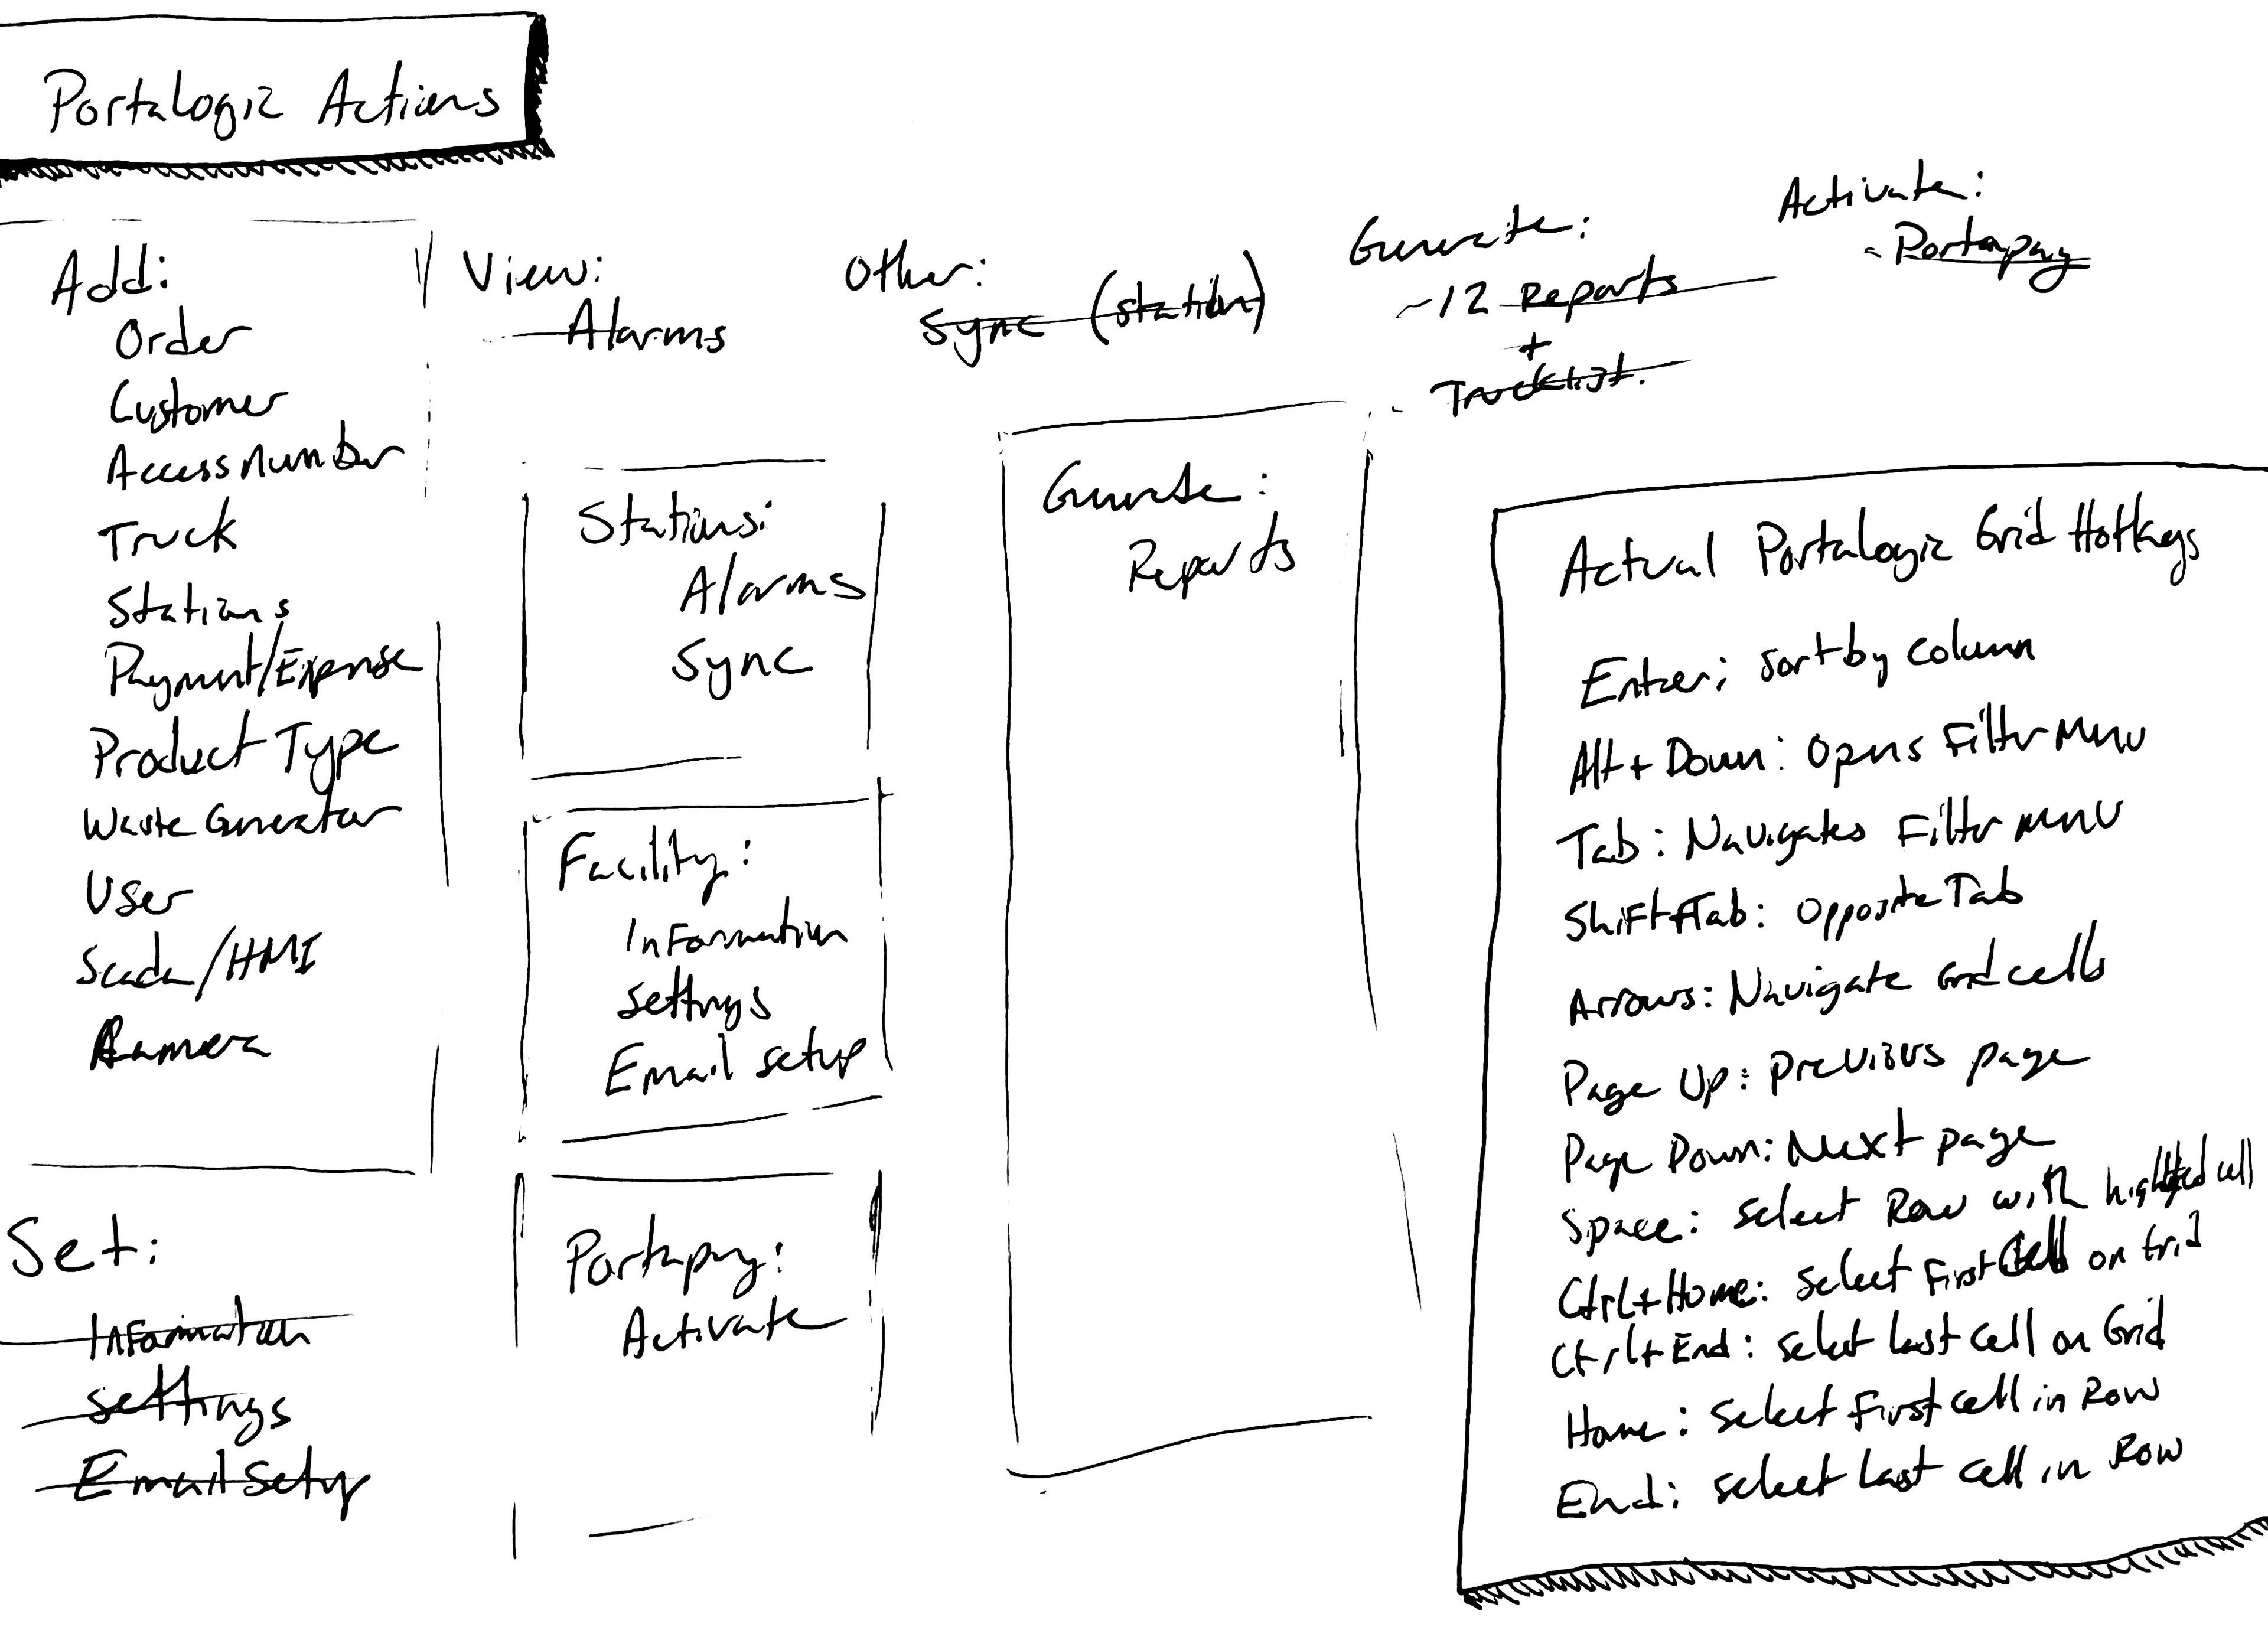 Portalogic Actions
Add:
Order
Customer
Access Number
Truck
Stations
Payment/Expense
Product Type
Waste Generator
User
Scada/HMI
Camera
Set:
Information
Settings
Email Setup
View:
Alarms
Other:
Sync (station)
Generate:
~12 Reports
+
Trucklist.
Activate:
- Portapay
Stations:
Alarms
Sync
Facility:
Information
Settings
Email setup
Portapay:
Activate
Generate:
Reports
Actual Portalogic Grid Hotkeys
Enter: Sort by column
Alt + Down: Opens Filter Menu
Tab: Navigates Filter menu
Shift+Tab: Opposite Tab
Arrows: Navigate Grid cells
Page Up: Previous page
Page Down: Next page
Space: Select Row with highlighted cell
Ctrl+Home: Select First Cell on Grid
Ctrl+End: Select last cell on Grid
Home: Select First cell in Row
End: Select Last cell in Row